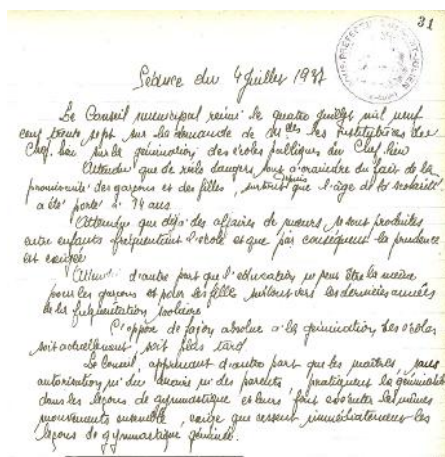 31
Séance du 4 Juillet 1937
Le Conseil municipal réuni le quatre juillet mil neuf
cent trente sept sur la demande de les institutrices du
Chef-lieu sur la gémination des écoles publiques du Chef lieu
Attendu que de réels dangers sont à craindre du fait de la
promiscuité des garçons et des filles, surtout depuis que l'âge de la scolarité
a été porté à 14 ans
Attendu que déjà des affaires de mœurs se sont produites
entre enfants fréquentant l'école et que par conséquent la prudence
est exigée
Attendu d'autre part que l'éducation ne peut être la même
pour les garçons et pour les fille surtout vers les dernières années
de la fréquentation scolaire
S'oppose de façon absolue à la gémination des écoles
soit actuellement soit plus tard
Le Conseil, apprenant d'autre part que les maîtres, sans
autorisation ni du maire ni des parents, pratiquent la gémination
dans les leçons de gymnastique et leur font exécuter les mêmes
mouvements ensemble, exige que cessent immédiatement les
leçons de gymnastique géminée.